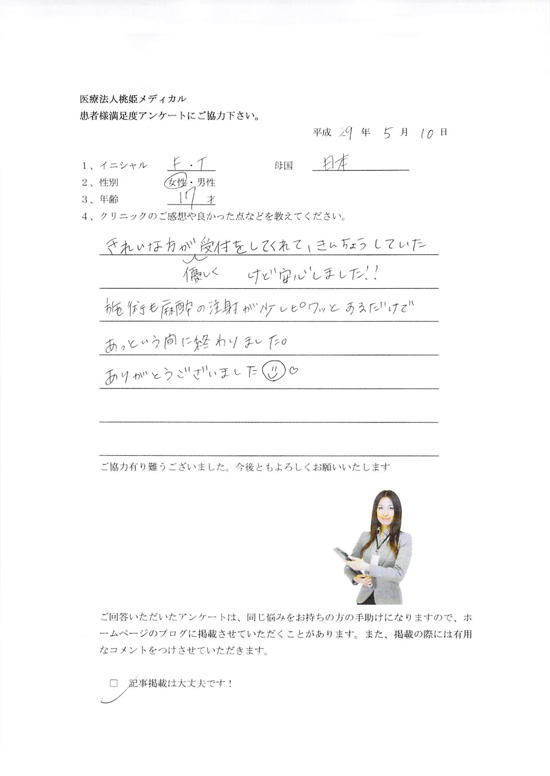 医療法人桃姫メディカル
患者様満足度アンケートにご協力下さい。
平成 29 年 5 月 10 日
1、イニシャル F.T 母国 日本
2、性別 女性・男性
3、年齢 17 才
4、クリニックのご感想や良かった点などを教えてください。
きれいな方が受付をしてくれて、きんちょうしていた
優しく けど安心しました!!
施術も麻酔の注射が少しピクッとするだけで
あっという間に終わりました。
ありがとうございました
ご協力有り難うございました。今後ともよろしくお願いいたします
ご回答いただいたアンケートは、同じ悩みをお持ちの方の手助けになりますので、ホ
ームページのブログに掲載させていただくことがあります。また、掲載の際には有用
なコメントをつけさせていただきます。
□ 記事掲載は大丈夫です！